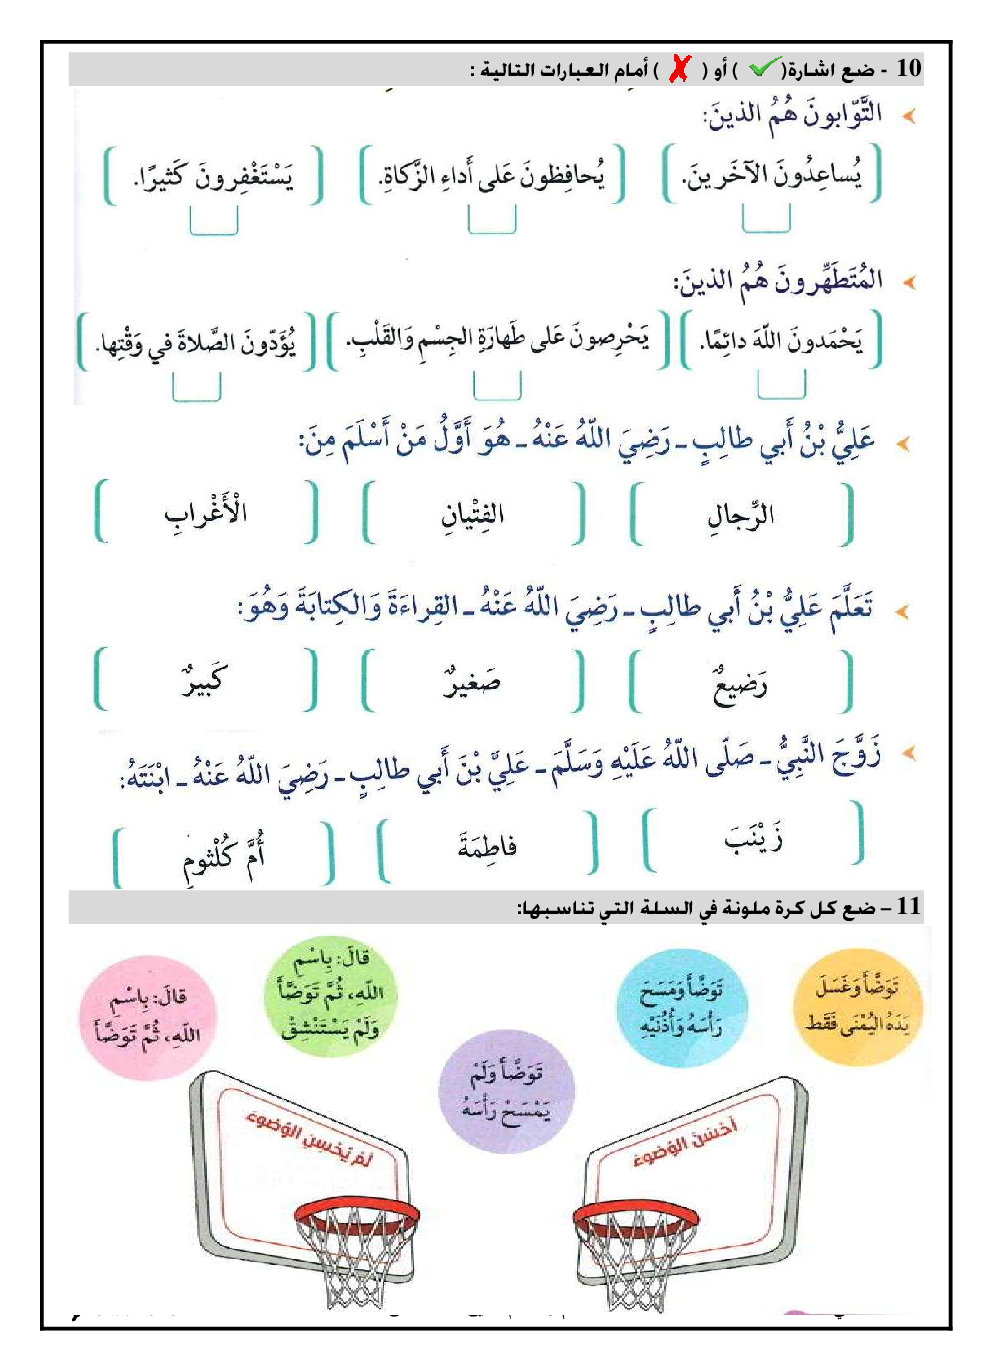 10 - ضع اشارة( ) أو ( ) أمام العبارات التالية :
التَّوّابونَ هُمُ الذينَ:
يُساعِدُونَ الآخَرينَ. يُحافِظونَ عَلى أَداءِ الزَّكاةِ. يَسْتَغْفِرونَ كَثيرًا.
المُتَطَهِّرونَ هُمُ الذينَ:
يَحْمَدونَ اللّهَ دائِمًا. يَحْرِصونَ عَلى طَهارَةِ الجِسْمِ وَالقَلْبِ. يُؤَدّونَ الصَّلاةَ في وَقْتِها.
عَلِيُّ بْنُ أَبي طالِبٍ ـ رَضِيَ اللّهُ عَنْهُ ـ هُوَ أَوَّلُ مَنْ أَسْلَمَ مِنَ:
الرِّجالِ الفِتْيانِ الْأَعْرابِ
تَعَلَّمَ عَلِيُّ بْنُ أَبي طالِبٍ ـ رَضِيَ اللّهُ عَنْهُ ـ القِراءَةَ وَالكِتابَةَ وَهُوَ:
رَضيعٌ صَغيرٌ كَبيرٌ
زَوَّجَ النَّبِيُّ ـ صَلّى اللّهُ عَلَيْهِ وَسَلَّمَ ـ عَلِيَّ بْنَ أَبي طالِبٍ ـ رَضِيَ اللّهُ عَنْهُ ـ ابْنَتَهُ:
زَيْنَبَ فاطِمَةَ أُمَّ كُلْثومِ
11 – ضع كل كرة ملونة في السلة التي تناسبها:
تَوَضَّأَ وَغَسَلَ
يَدَهُ اليُمْنَى فَقَط
تَوَضَّأَ وَمَسَحَ
رَأْسَهُ وَأُذُنَيْهِ
قالَ: بِاسْمِ
اللّهِ، ثُمَّ تَوَضَّأَ
وَلَمْ يَسْتَنْشِقْ
قالَ: بِاسْمِ
اللّهِ، ثُمَّ تَوَضَّأَ
تَوَضَّأَ وَلَمْ
يَمْسَحْ رَأْسَهُ
أَحْسَنَ الوُضوءَ
لَمْ يُحْسِنِ الوُضوءَ